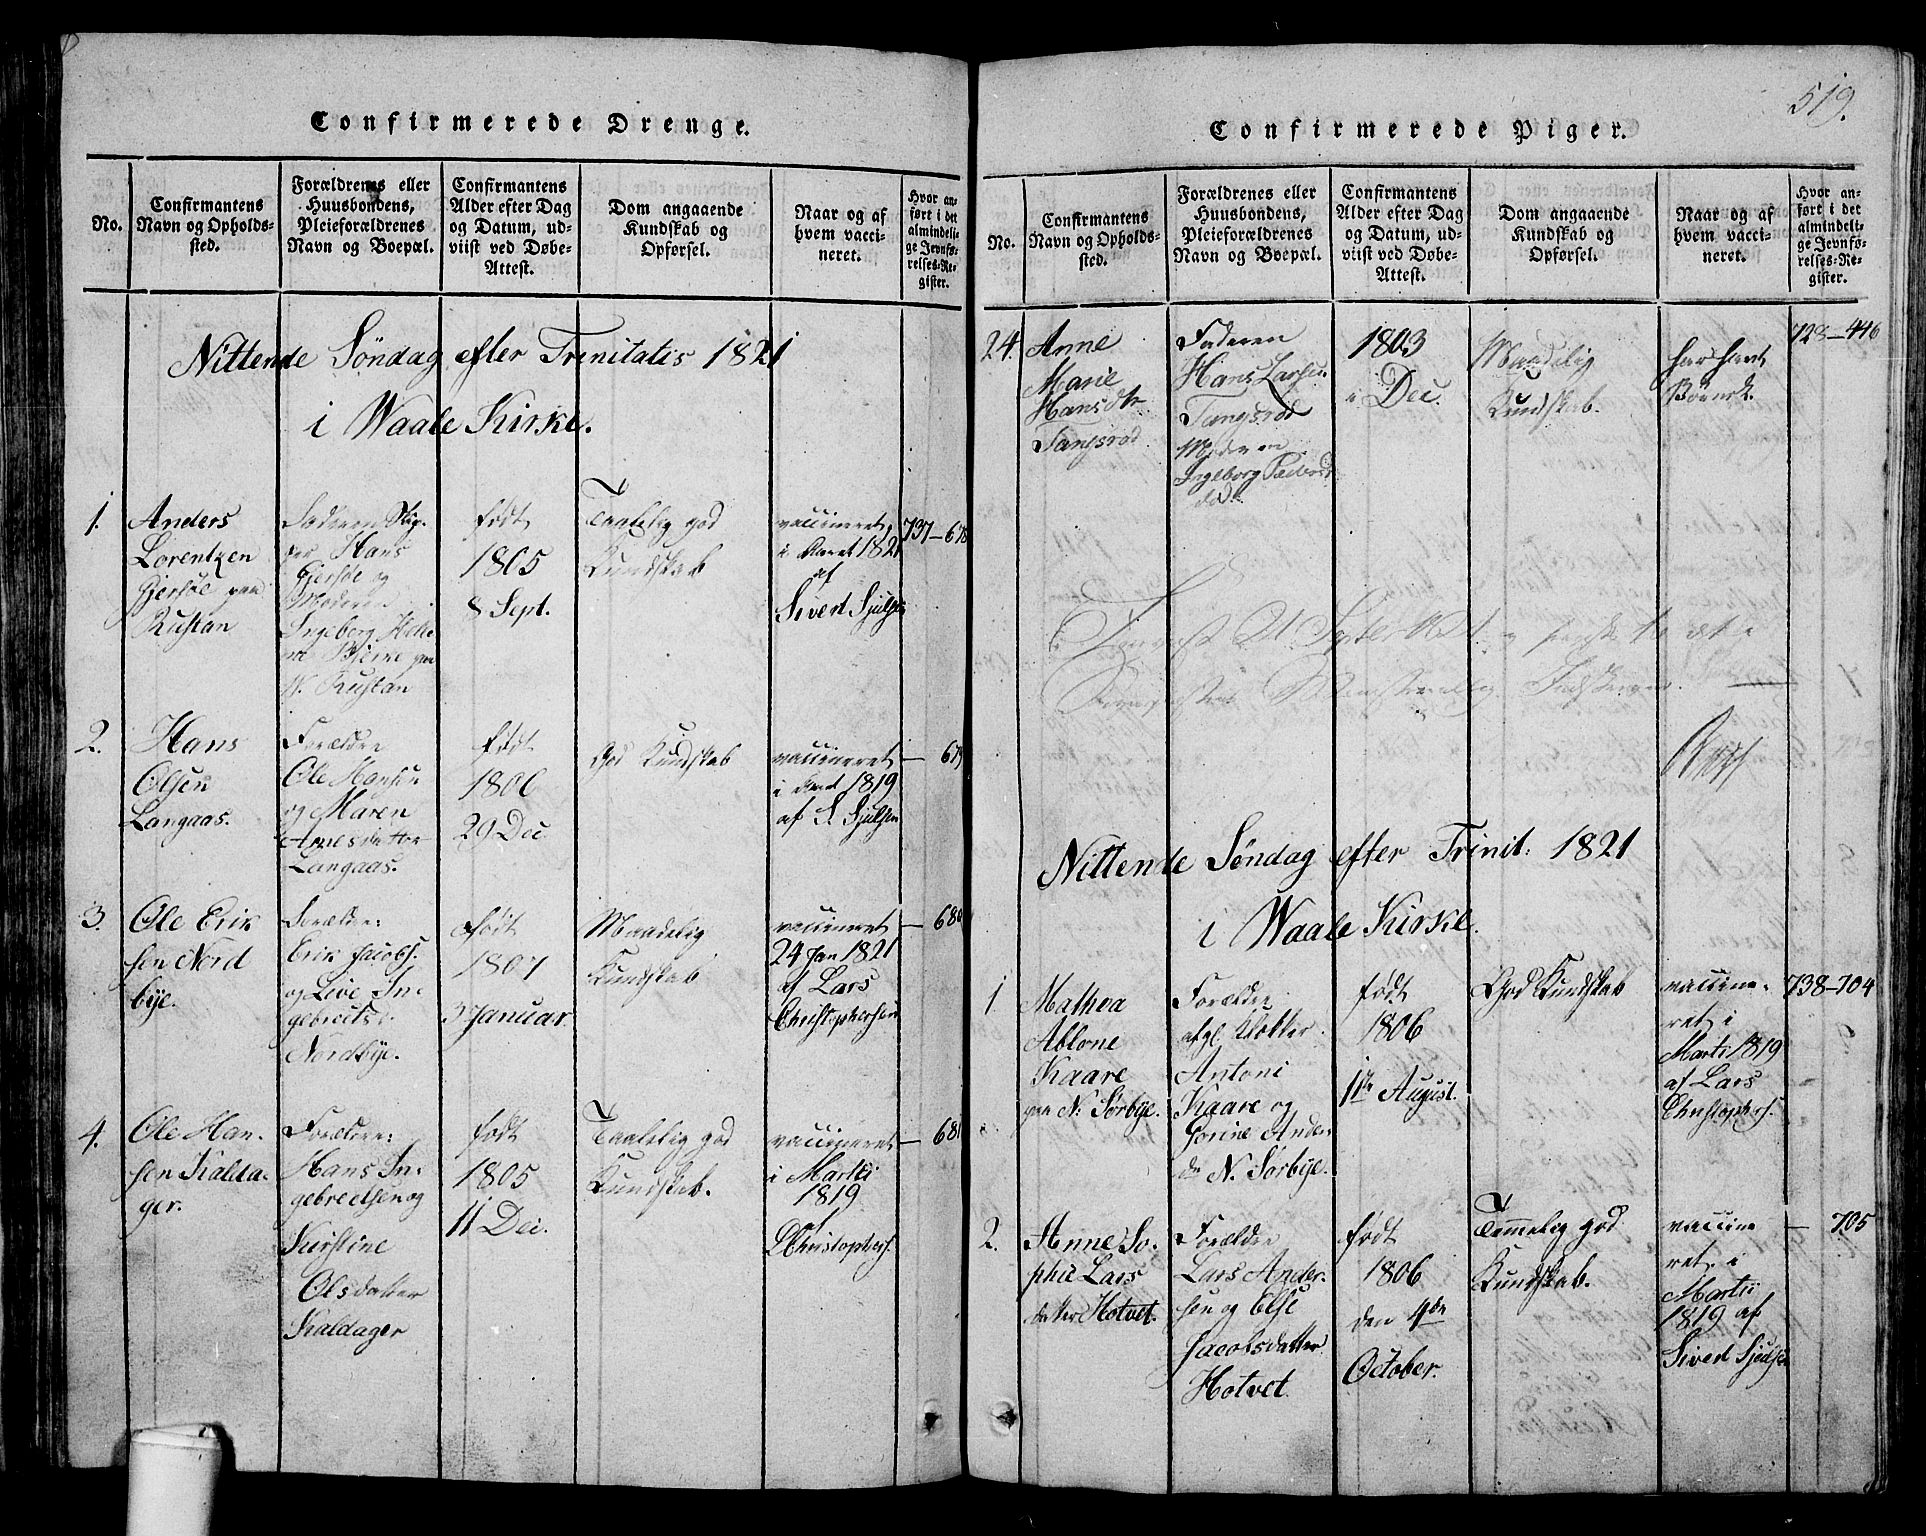 Confirmerede Drenge.
No.
Confirmantens
Navn og Opholds-
sted.
Forældrenes eller
Huusbondens,
Pleieforældrenes
Navn og Boepæl.
Confirmantens
Alder efter Dag
og Datum, ud-
viist ved Døbe-
Attest.
Dom angaaende
Kundskab og
Opførsel.
Naar og af
hvem vacci-
neret.
Hvor an-
ført i det
almindeli-
ge Jevnfø-
relses-Re-
gister.
Nittende Søndag efter Trinitatis 1821
i Waale Kirke.
1.
Anders
Lorentzen
Gjersøe paa
Rustan
Faderen Skip-
per Hans
Gjersøe og
Moderen
Ingeborg Hele-
ne Bjerke paa
N. Rustan
født
1805
8 Sept.
Taalelig god
Kundskab
vaccineret
i Aaret 1821
af
Sivert Sjulsen
737-678
2.
Hans
Olsen
Langaas.
Forældre
Ole Hansen
og Maren
Arnesdatter
Langaas.
født
1806
29 Dec
God Kundskab
vaccineret
i Aaret 1819
af S Sjulsen
— 679
3.
Ole Erik
sen Nord
bye.
Forældre:
Erik Jacobs.
og Live In-
gebrets
Nordbye.
født
1807
3 Januar.
Maadelig
Kundskab
vaccineret
24 Jan 1821
af Lars
Christophersen
— 680
4.
Ole Han-
sen Kalda-
ger.
Forældre:
Hans In-
gebreetsen og
Kirstine
Olsdatter
Kaldager
født
1805
11 Dec.
Taalelig god
Kundskab.
vaccineret
i Martii
1819
L Christophers.
— 681
519.
Confirmerede Piger.
No.
Confirmantens
Navn og Opholds-
sted.
Forældrenes eller
Huusbondens,
Pleieforældrenes
Navn og Boepæl.
Confirmantens
Alder efter Dag
og Datum, ud-
viist ved Døbe-
Attest.
Dom angaaende
Kundskab og
Opførsel.
Naar og af
hvem vacci-
neret.
Hvor an-
ført i det
almindeli-
ge Jevnfø-
relses-Re-
gister.
24.
Anne
Marie
Hansdtr
Tangsrød
Faderen
Hans Larsen
Tangsrød
Moderen
Ingeborg Pedersd
død.
1803
i Dec.
Maadelig
Kundskab.
har havt
728-446
Nittende Søndag efter Trinit: 1821
i Waale Kirke.
1.
Mathea
Ablone
Kaare
paa N: Sørbye.
Forældre
afg. Klokker
Antoni
Kaare og
Sorine Ander
N. Sørbye.
født
1806
1te August.
God Kundskab
vaccine-
ret i
Martii 1819
af Lars
Christophers.
738-704
2.
Anne So-
phie Lars
datter Hotvet.
Forældre
Lars Ander-
sen og Else
Jacobsdatter
Hotvet
født
1806
den 4de
October.
Temmelig god
Kundskab.
vaccine
ret i
Martii
1819 af
Sivert Sjulsen
— 705